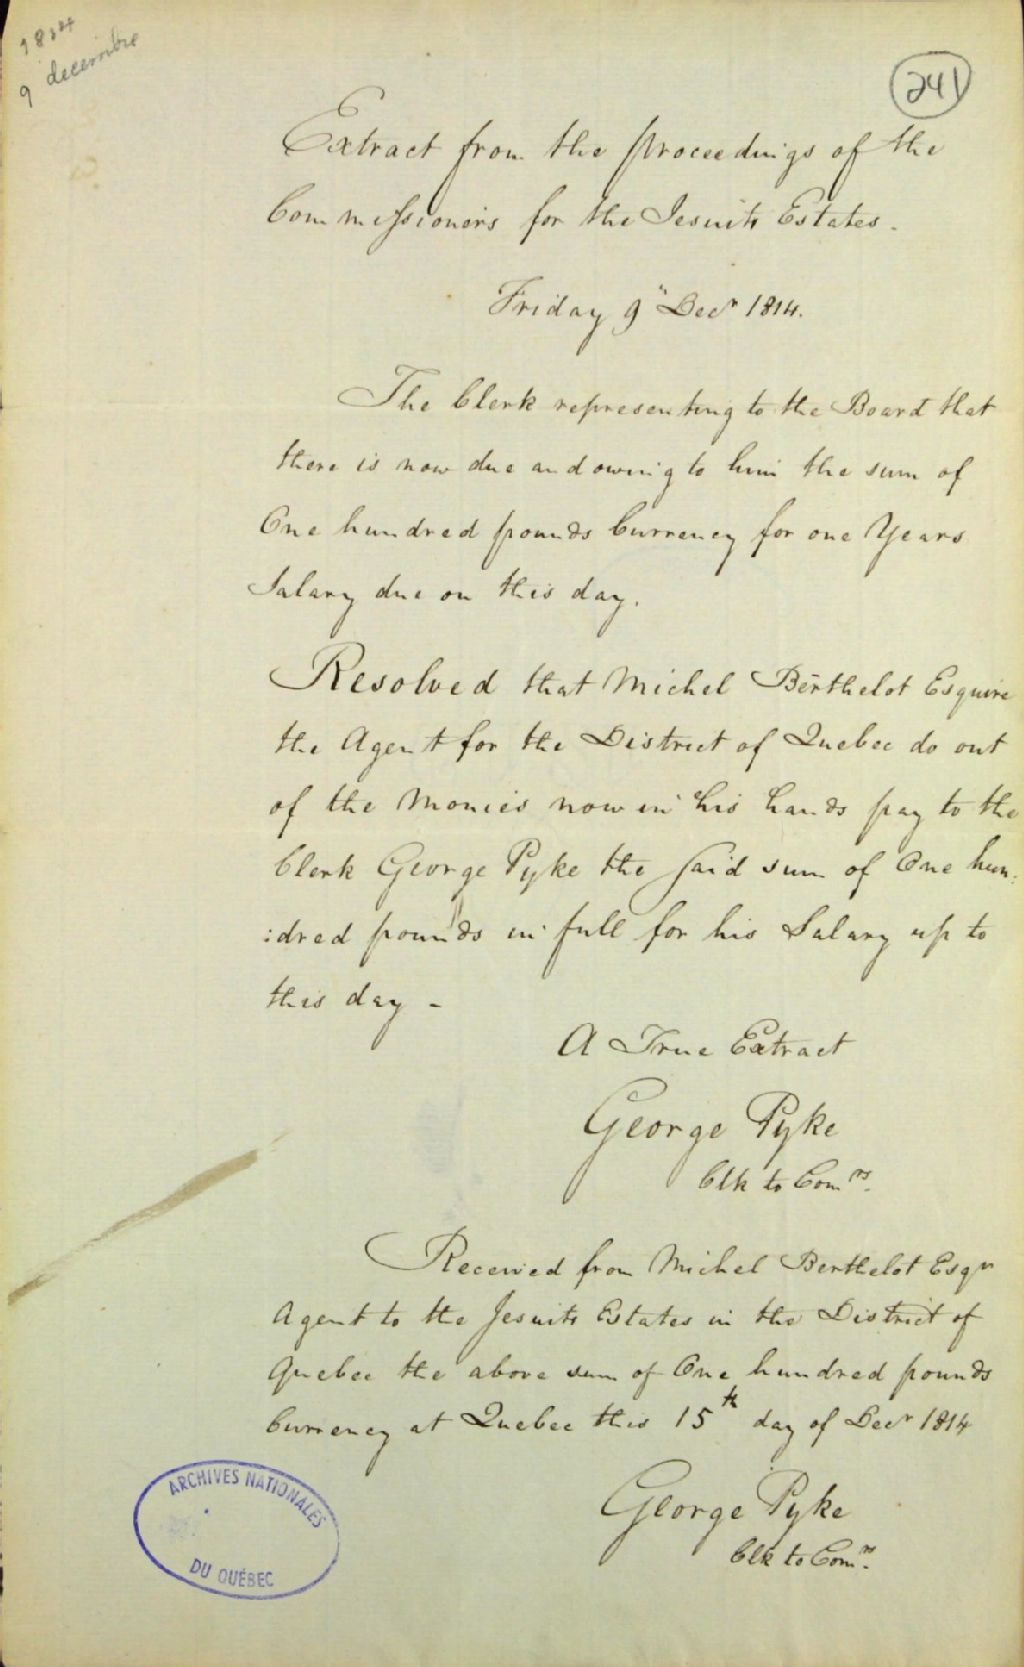 1814
9 decembre
241
Extract from the proceedings of the
Commissioners for the Jesuits Estates.
Friday 9" Decr 1814.
The Clerk representing to the Board that
there is now due and owing to him the sum of
One hundred pounds Currency for one Years
Salary due on this day.
Resolved that Michel Berthelot Esquire
the Agent for the District of Quebec do out
of the Monies now in his hands pay to the
Clerk George Pyke the said sum of One hun:
:dred pounds in full for his Salary up to
this day -
A True Extract
George Pyke
Clk to Comrs.
Received from Michel Berthelot Esqr
Agent to the Jesuits Estates in the District of
Quebec the above sum of One hundred pounds
Currency at Quebec this 15th day of Decr 1814
George Pyke
Clk to Comrs.
ARCHIVES NATIONALES
DU QUÉBEC